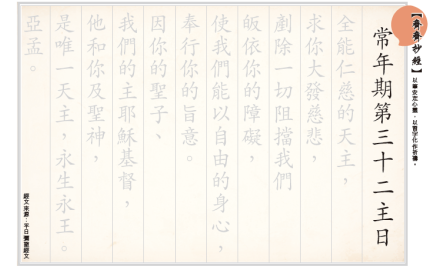 【齊齊抄經】以筆安定心靈，以首字化作祈禱。
常年期第三十二主日
全能仁慈的天主，
求你大發慈悲，
剷除一切阻擋我們
皈依你的障礙，
使我們能以自由的身心，
奉行你的旨意。
因你的聖子、
我們的主耶穌基督，
他和你及聖神，
是唯一天主，永生永王。
亞孟。
經文來源：主日彌撒經文